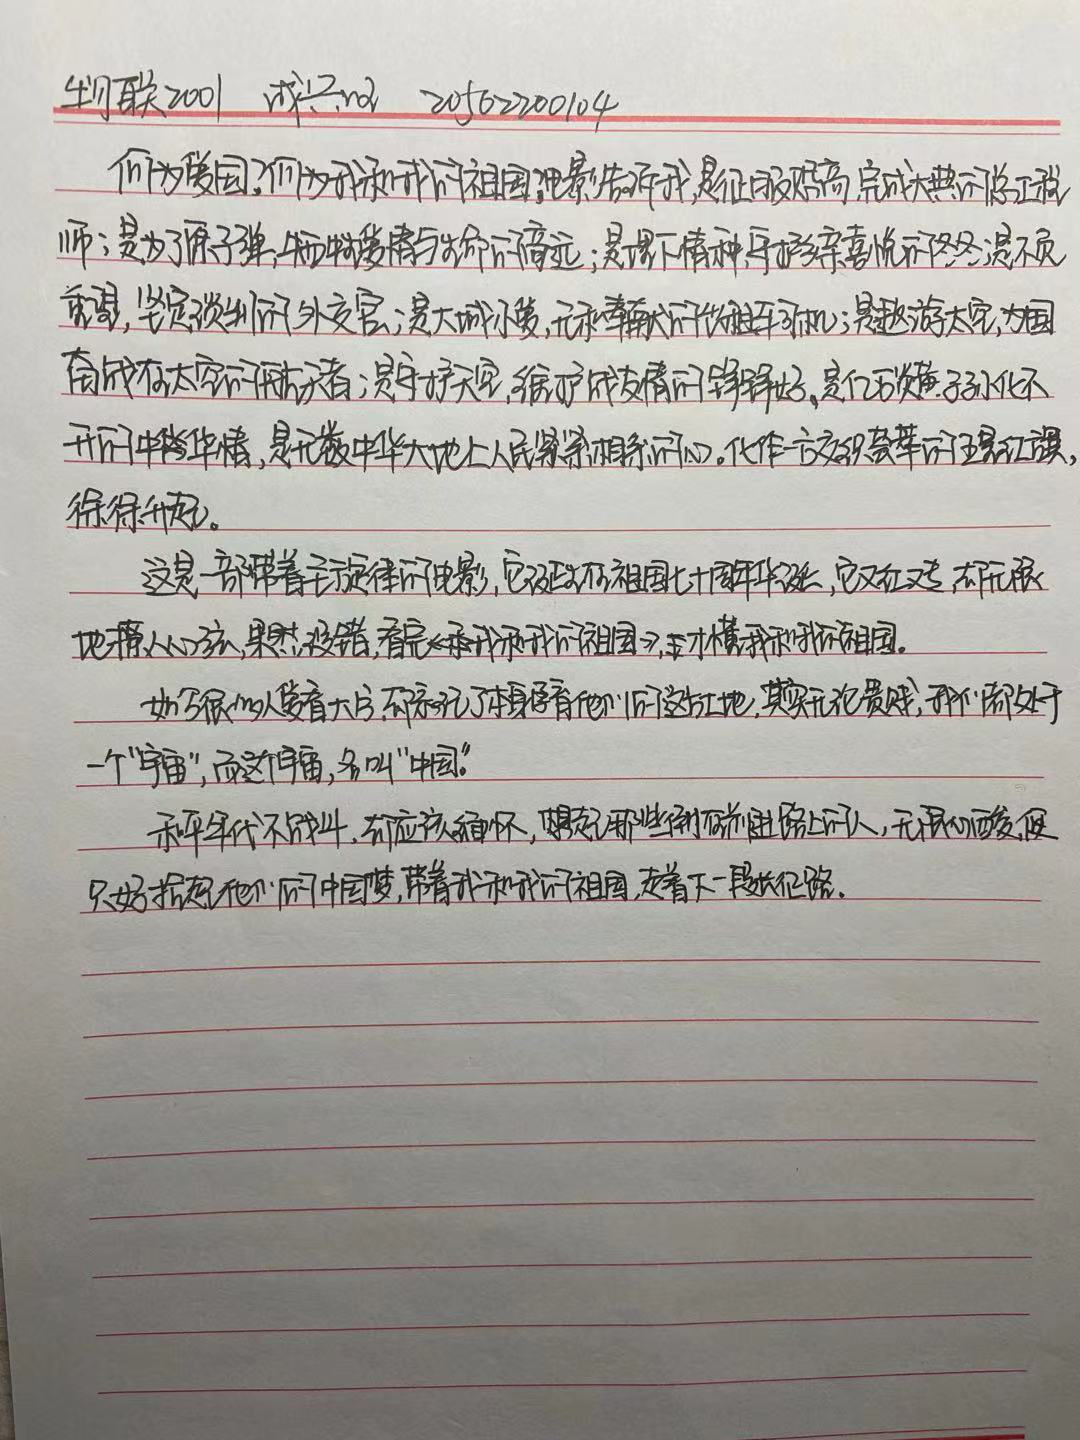 物联2001 20562200104
何为爱国?何为我和我的祖国,电影告诉我,是征服恐高,完成大典的总工程
师;是为了原子弹,牺牲爱情与生命的高远;是课下精神,守护亲喜悦的冬冬;是不负
重望,坚定谈判的外交官;是大城小爱,无私奉献的出租车司机;是遨游太空,为国
奋战在太空的航天者;是守护天空,维护战友情的
开的中华情,是无数中华大地上人民紧紧相系的心。化作一方交织荟萃的五星红旗,
徐徐升起。
这是一部带着主旋律的电影,它诞生在祖国七十周年华诞,它又红又专,却无限
地撩人心弦,果然,没错,看完《我和我的祖国》,才懂我和我的祖国。
如今很多人爱看大片,却忘记了本身孕育他们的这片土地,其实无论贵贱,我们都处于
一个"宇宙",而这个宇宙,名叫"中国"。
和平年代不战斗,却应该缅怀,想起那些倒在前进路上的人,无限心酸,但
只好拾起他们的中国梦,带着我和我的祖国,走着下一段长征路。